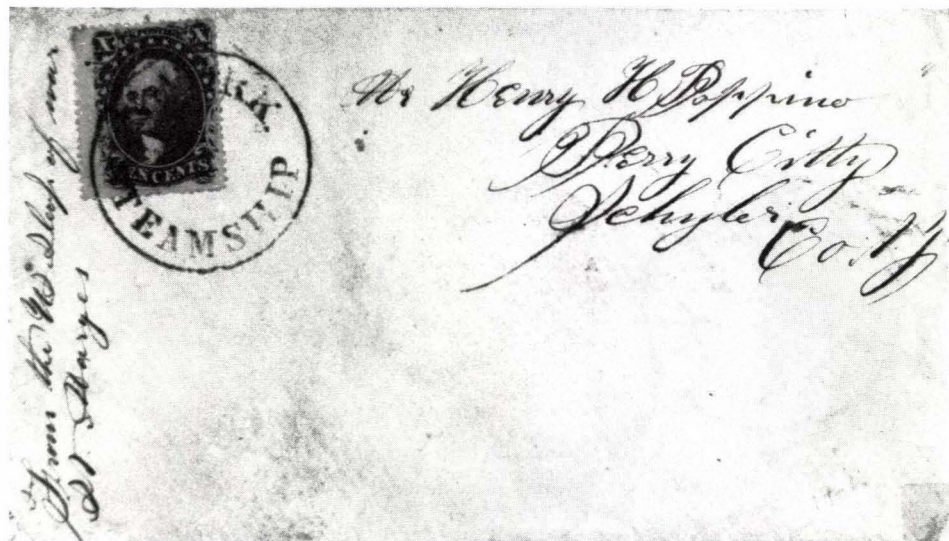 From the U.S. Ship of war
St. Maryes
X X
TEN CENTS
STEAMSHIP
Mr Henry H Poppino
Perry Citty
Schyler
Co. N.Y